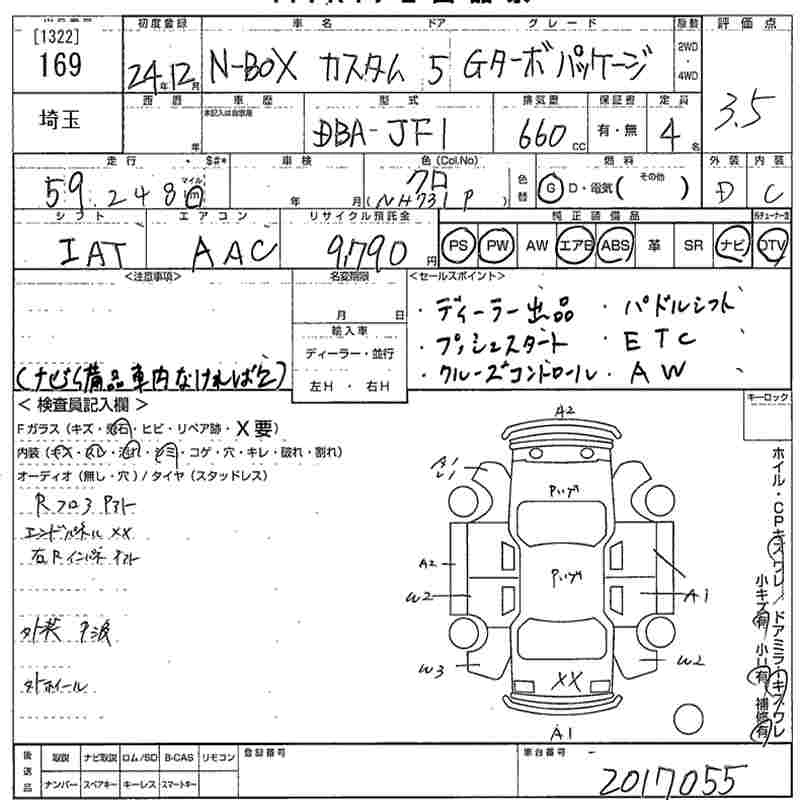 [1322]
169
埼玉
初度登録
24年12月
車名 ドア グレード
N-BOX カスタム 5 Gターボパッケージ
駆動
2WD
・
4WD
評価点
3.5
西暦
年
車歴
本記入は自家用
型式
DBA-JF1
排気量
660cc
保証書
有・無
定員
4名
走行 ・ S#*
59,248 マイル km
車検
年 月
色(Col.No)
クロ
(NH731P)
色替
燃料
G D・電気( その他 )
外装
D
内装
C
シフト
IAT
エアコン
AAC
リサイクル預託金
9,790円
純正装備品
PS PW AW エアB ABS 革 SR ナビ DTV
<注意事項>
(ナビ・備品車内なければ欠)
名変期限
月 日
輸入車
ディーラー・並行
左H ・ 右H
<セールスポイント>
・ディーラー出品 ・パドルシフト
・プッシュスタート ・ETC
・クルーズコントロール ・AW
< 検査員記入欄 >
Fガラス (キズ・飛石・ヒビ・リペア跡・X要)
内装 (キズ・スレ・汚れ・シミ・コゲ・穴・キレ・破れ・割れ)
オーディオ (無し・穴) / タイヤ (スタッドレス)
Rフロア
エンドパネル XX
右Rインパネ
外装 夕波
外ホイール
キーロック
A2
A1
A2
W2
A1
W3
W2
XX
A1
ホイル・CPキズワレ/ドアミラーキズワレ
小キズ有 小U有 補修有
後送品
取説 ナビ取説 ロム/SD B-CAS リモコン
ナンバー スペアキー キーレス スマートキー
登録番号
車台番号
2017055